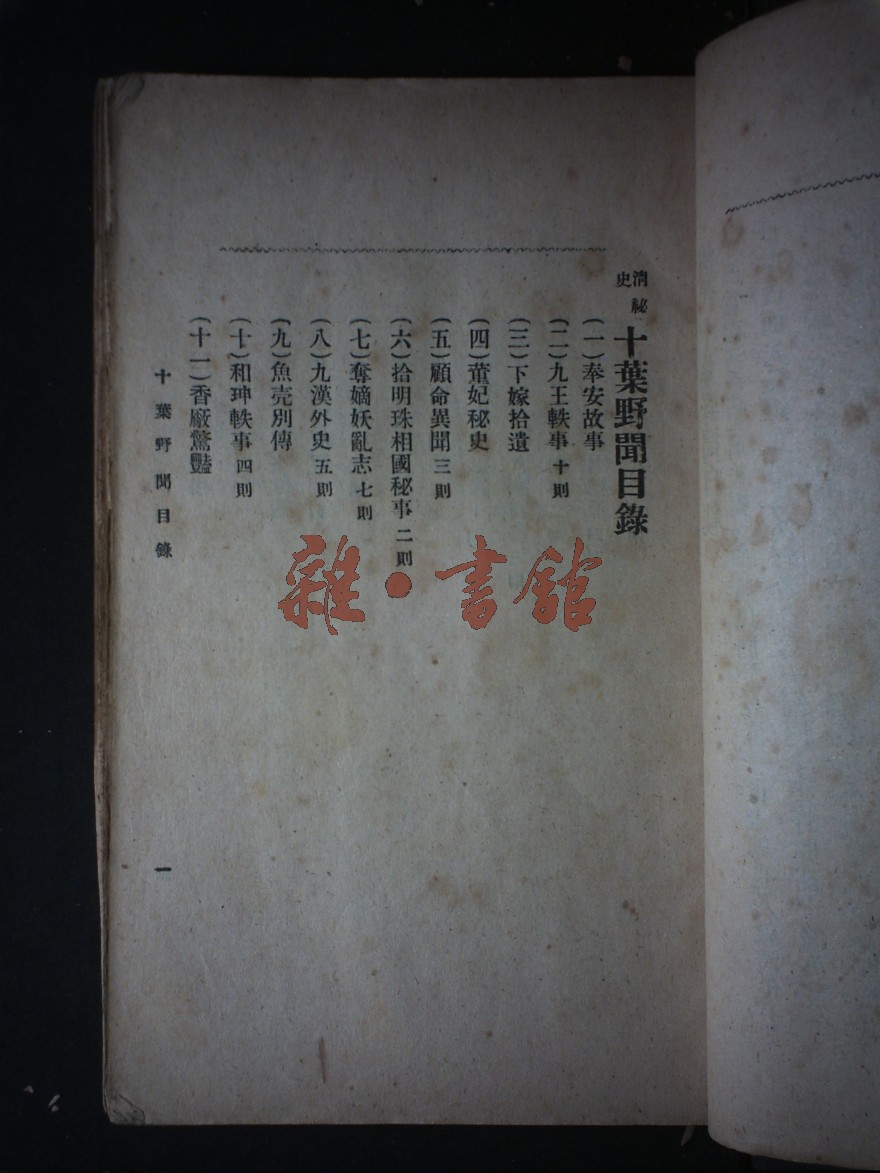 清祕史 十葉野聞目錄
(一)奉安故事
(二)九王軼事 十則
(三)下嫁拾遺
(四)董妃秘史
(五)顧命異聞 三則
(六)拾明珠相國秘事 二則
(七)奪嫡妖亂志 七則
(八)九漢外史 五則
(九)魚壳別傳
(十)和珅軼事 四則
(十一)香廠驚豔
十葉野聞目錄
一
雜·書館